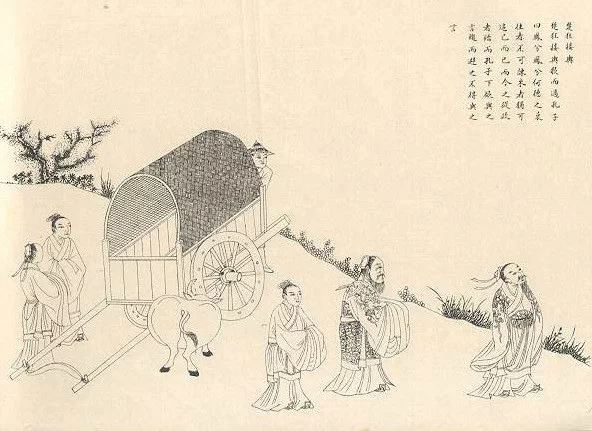 楚狂接輿
楚狂接輿歌而過孔子
曰鳳兮鳳兮何德之衰
往者不可諫來者猶可
追已而已而今之從政
者殆而孔子下欲與之
言趨而避之不得與之
言